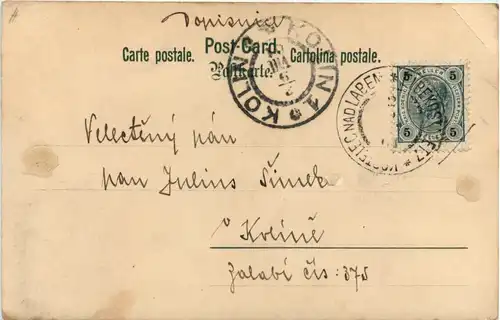 Dopisnice
Carte postale. Post-Card. Cartolina postale.
Postkarte.
KOLÍN 1 * KOLIN
5 5
5 5
KOSTELEC NAD LAB. EN
Velectěný pán
pan Julius Šimek
v Kolíně
Zálabí čís: 375